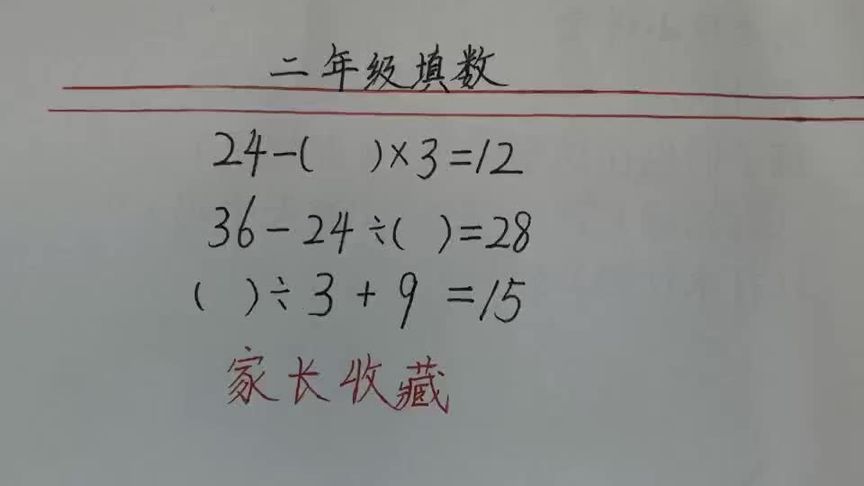 二年级填数
24-(   )×3=12
36-24÷(   )=28
(   )÷3+9=15
家长收藏